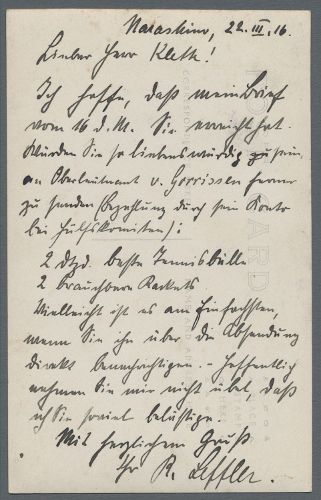 Narashino, 22. III. 16.
Lieber Herr Klett!
Ich hoffe, daß mein Brief
vom 16 d. M. Sie erreicht hat.
Würden Sie so liebenswürdig sein,
an Oberleutnant v. Gorrissen ferner
zu senden (Bezahlung durch sein Konto
bei Hülfskomitee):
2 Dtzd. beste Tennisbälle
2 brauchbare Rackets
Vielleicht ist es am Einfachsten,
wenn Sie ihn über die Absendung
direkt benachrichtigen. - Hoffentlich
nehmen Sie mir nicht übel, daß
ich Sie soviel belästige.
Mit herzlichem Gruß
Ihr R. Leffler.